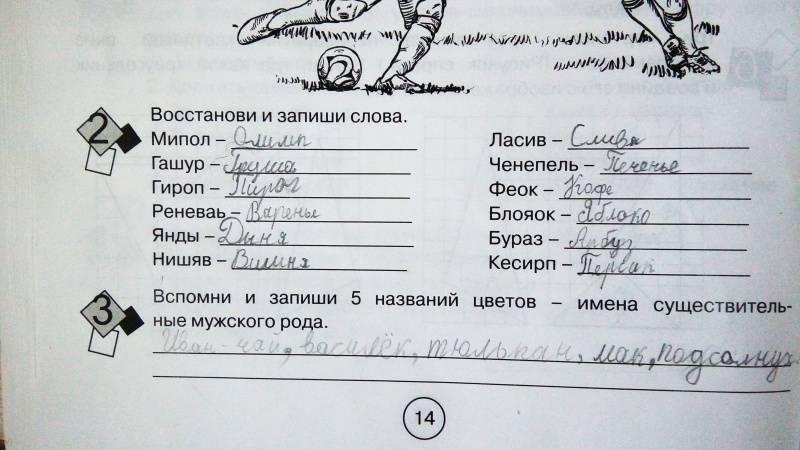 2
Восстанови и запиши слова.
Мипол – Олимп
Гашур – Груша
Гироп – Пирог
Реневаь – Варенье
Янды – Дыня
Нишяв – Вишня
Ласив – Слива
Ченепель – Печенье
Феок – Кофе
Блояок – Яблоко
Бураз – Арбуз
Кесирп – Персик
3
Вспомни и запиши 5 названий цветов – имена существитель-
ные мужского рода.
Иван-чай, василёк, тюльпан, мак, подсолнух
14